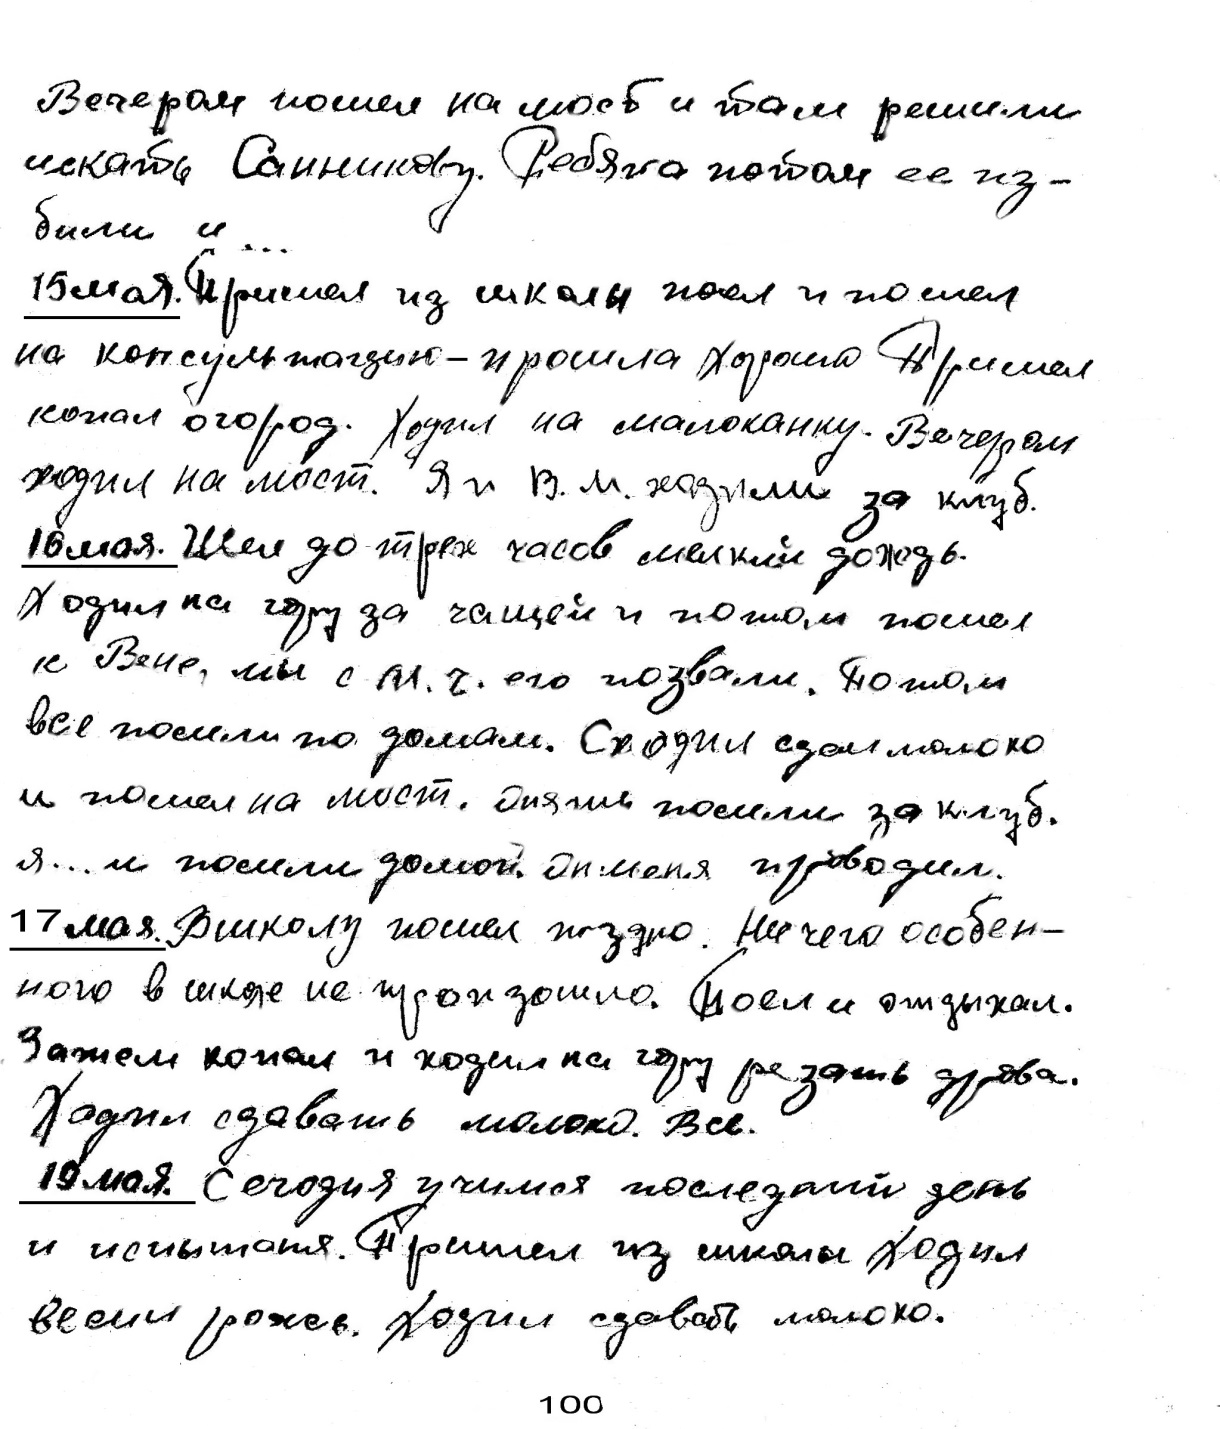 Вечером пошел на мост и там решили
искать Санникову. Ребята потом ее из-
били и ...
15 мая. Пришел из школы поел и пошел
на консультацию - прошла хорошо Пришел
копал огород. Ходил на малоканку. Вечером
ходил на мост. Я и В. М. ходили за клуб.
16 мая. Шел до трех часов мелкий дождь.
Ходил на гору за чащей и потом пошел
к Вене, мы с М. Ч. его позвали. Потом
все пошли по домам. Сходил сдал молоко
и пошел на мост. Опять пошли за клуб.
я... и пошли домой. Он меня проводил.
17 мая. В школу пошел поздно. Ничего особен-
ного в школе не произошло. Поел и отдыхал.
Затем копал и ходил на гору резать дрова.
Ходил сдавать молоко. Все.
19 мая. Сегодня учимся последний день
и Пришел из школы Ходил
рожь. Ходил сдавать молоко.
100